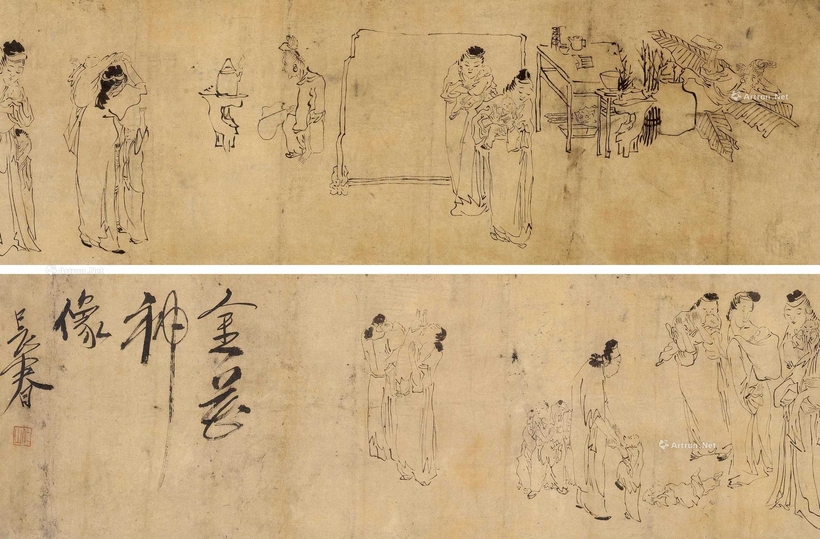 金
神
像
長春
Artron.Net
Artron.Net
Artron.Net